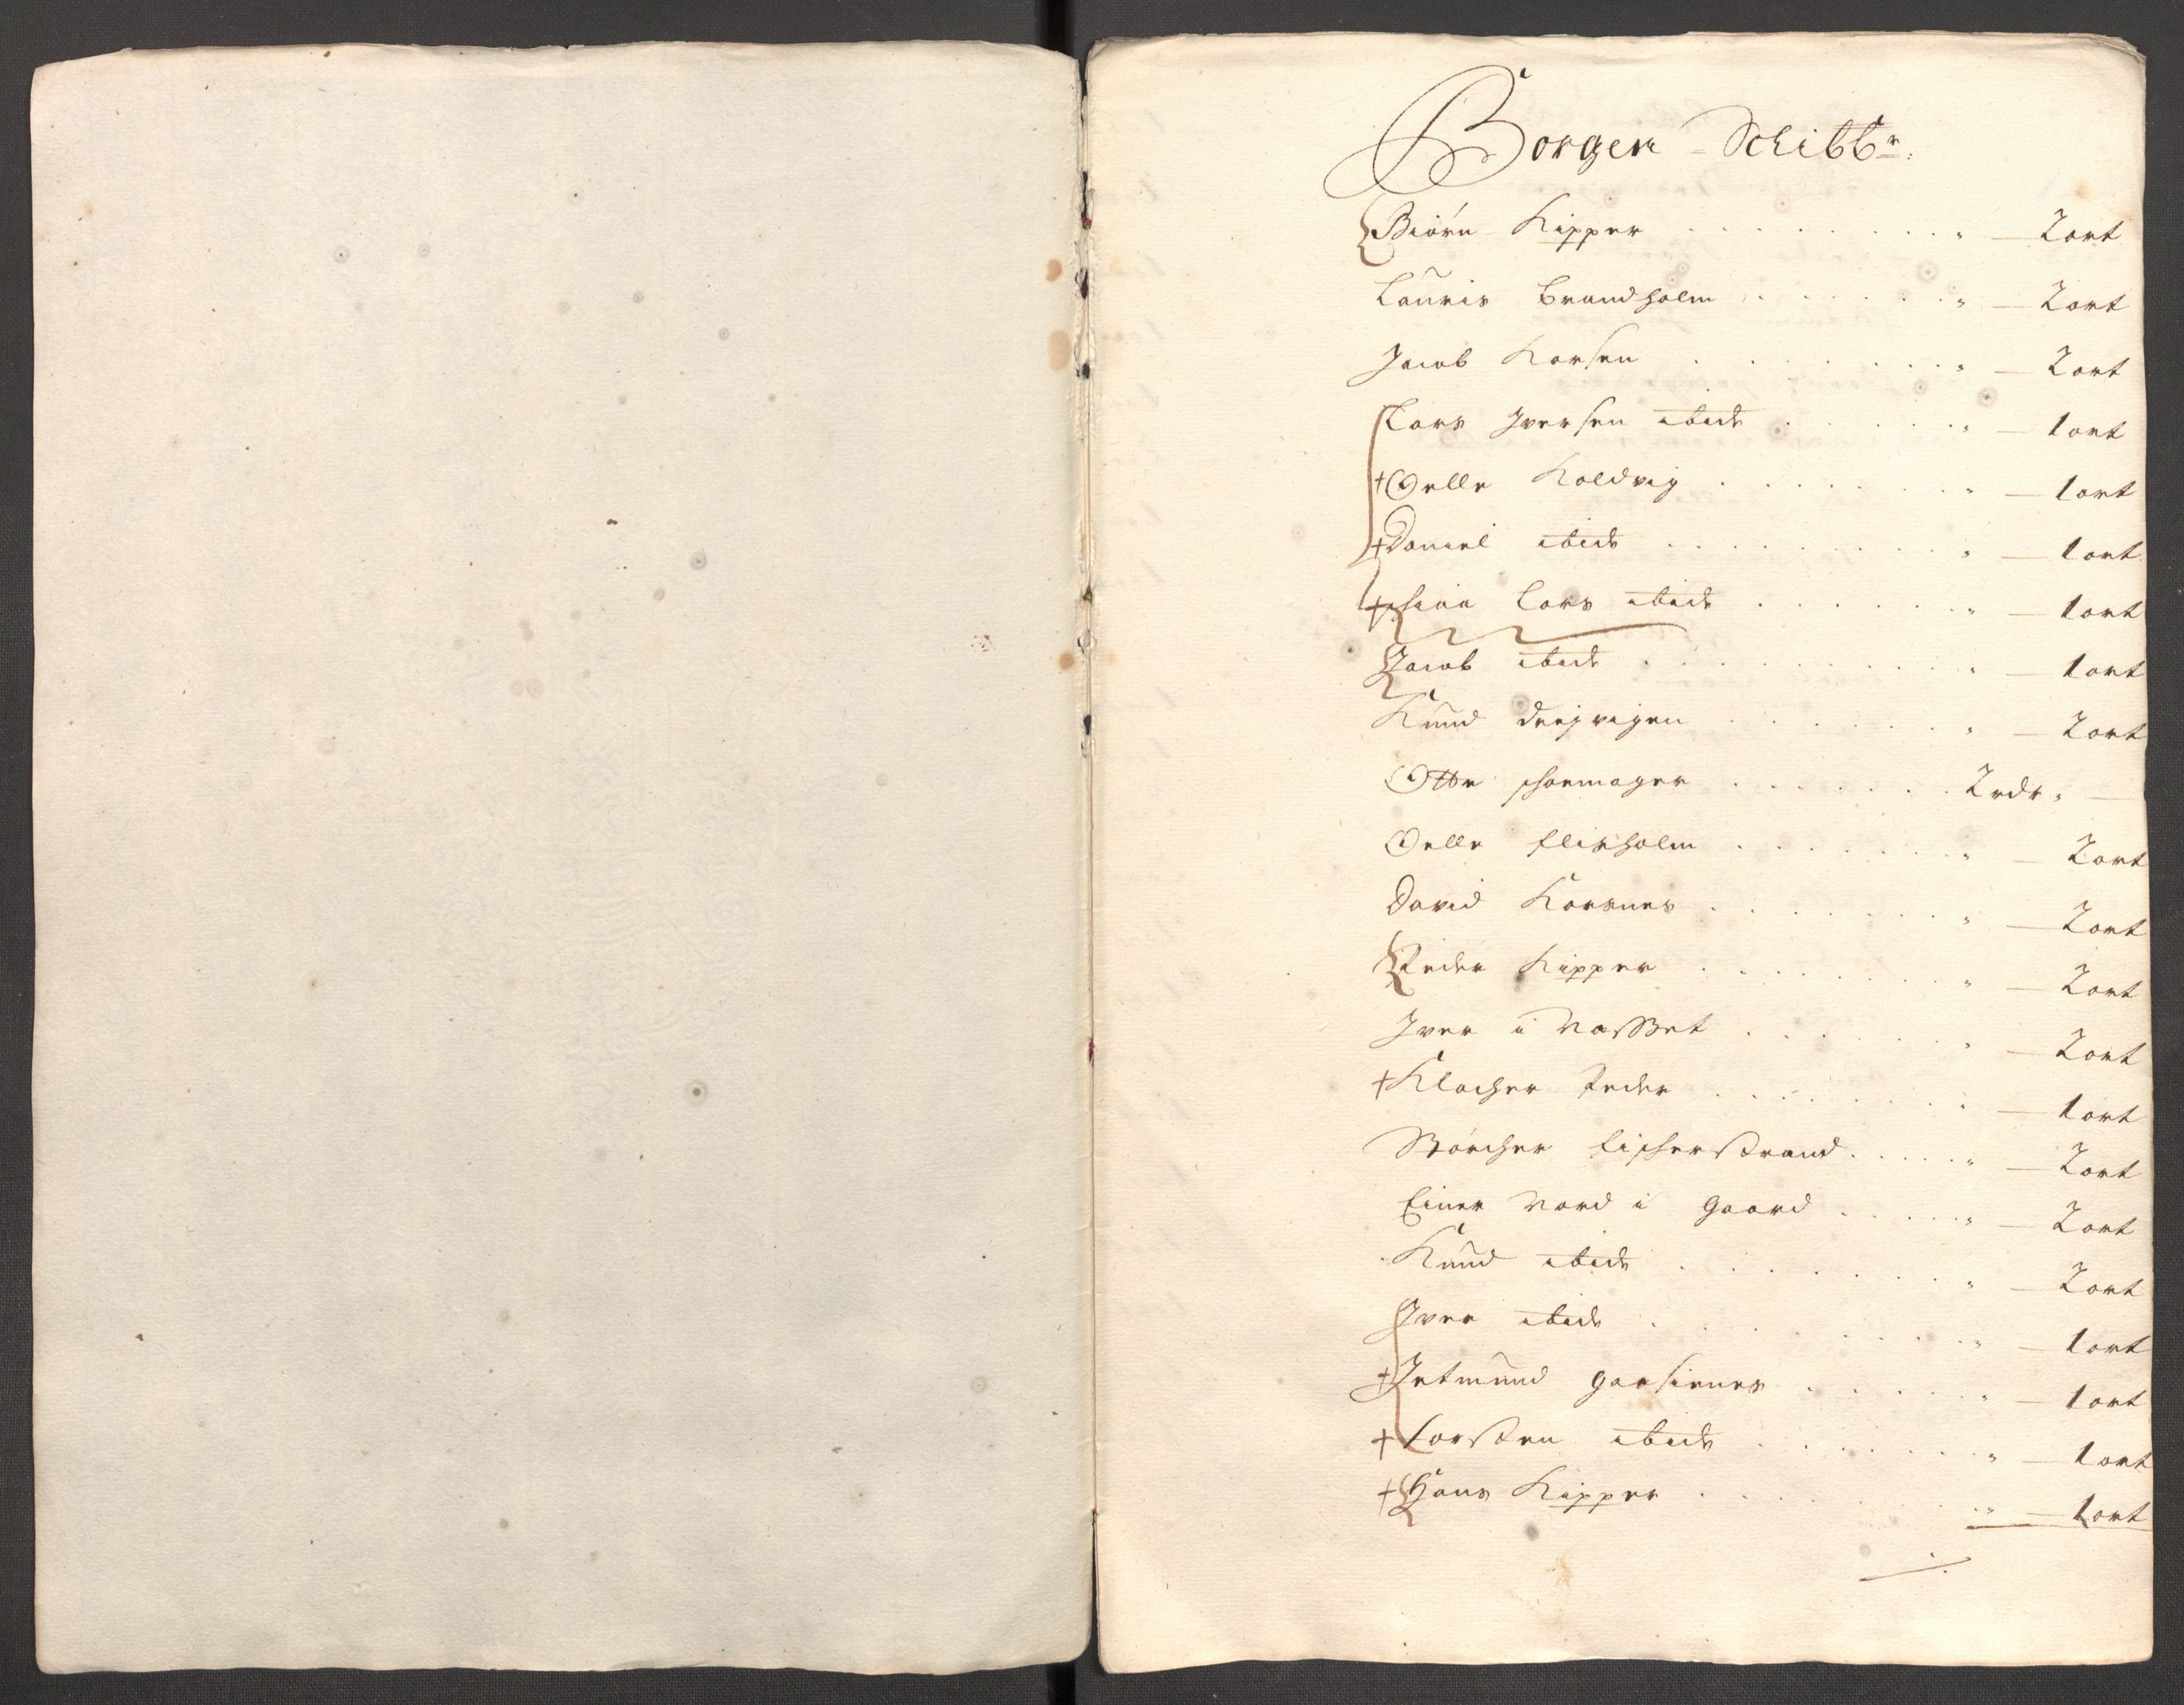 Borgen Schibbr.
Biörn Kipper . . . . . . . . . " — 2 ort
Lauris brandholm . . . . . . " — 2 ort
Jacob Korsen . . . . . . . . " — 2 ort
Lars Iversen ibid . . . . . . " — 1 ort
+ Oelle Koldvig . . . . . . . . " — 1 ort
+ Daniel ibid . . . . . . . . . " — 1 ort
+ Lars ibid . . . . . . . " — 1 ort
Jacob ibid . . . . . . . . . . " — 1 ort
Knud dreyvigen . . . . . . . . " — 2 ort
Otte schomager . . . . . . . 2 rdr " —
Oelle flisholm . . . . . . . " — 2 ort
David Korsnes . . . . . . . . " — 2 ort
Peder Kipper . . . . . . . . " — 2 ort
Iver i Vasset . . . . . . . . " — 2 ort
+ Klocher Peder . . . . . . . . — 1 ort
Störcher fischerstrand . . . . . " — 2 ort
Einer Nord i gaard . . . . . " — 2 ort
Knud ibid . . . . . . . . " — 2 ort
Iver ibid . . . . . . . . . " — 1 ort
+ Jetmund gaasienes . . . . . " — 1 ort
+ Torsten ibid . . . . . . . . " — 1 ort
+ Hans Kipper . . . . . . . . " — 1 ort